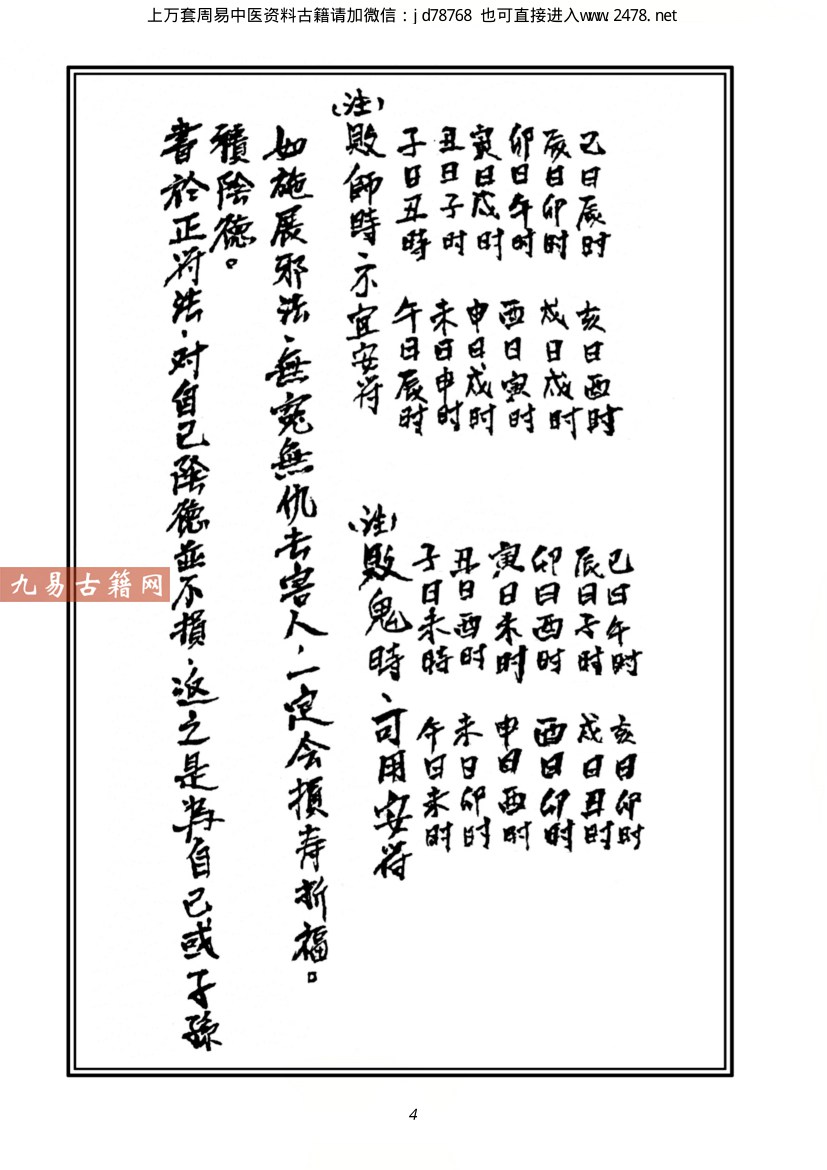 上万套周易中医资料古籍请加微信：jd78768 也可直接进入www.2478.net
書於正符法，对自己陰德並不損，返之是為自己或子孫
積陰德。
如施展邪法、無冤無仇去害人，一定会損寿折福。
（注）敗師時、不宜安符
子日丑時 午日辰时
丑日子时 未日申时
寅日戌时 申日戌时
卯日午时 酉日寅时
辰日卯时 戌日戌时
巳日辰时 亥日酉时
（注）敗鬼時、可用安符
子日未時 午日未时
丑日酉时 未日卯时
寅日未时 申日酉时
卯日酉时 酉日卯时
辰日子时 戌日丑时
巳日午时 亥日卯时
九易古籍网
4